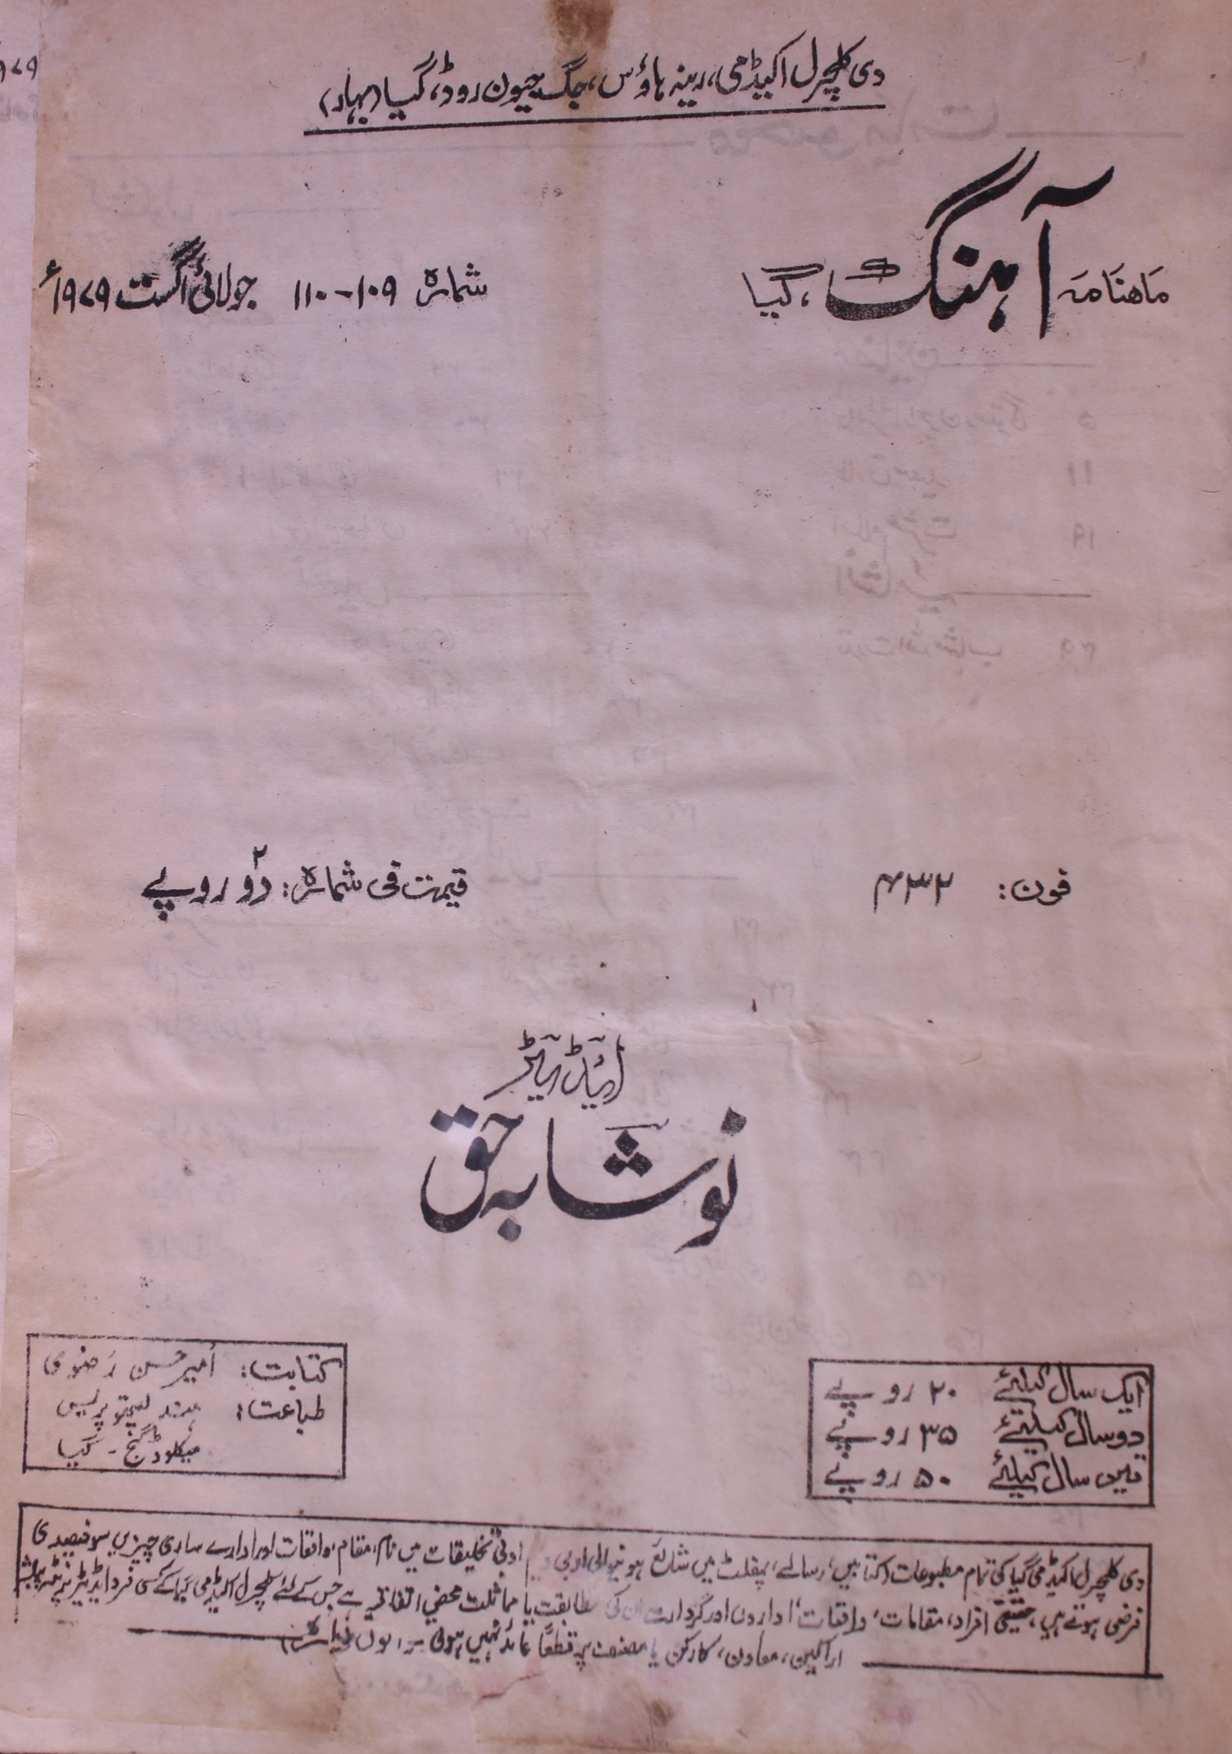 دی کلچرل اکیڈمی، رینہ ہاؤس، جگ جیون روڈ، گیا (بہار)
ماہنامہ آہنگ، گیا
شمارہ ۱۰۹-۱۱۰ جولائی اگست ۱۹۷۹ء
فون: ۴۳۲
قیمت فی شمارہ: دو۲ روپے
ایڈیٹر
نوشابہ حق
ایک سال کیلئے ۲۰ روپے
دو سال کیلئے ۳۵ روپے
تین سال کیلئے ۵۰ روپے
کتابت: امیر حسن رضوی
طباعت: ہند لیتھو پریس
میکلوڈ گنج - گیا
دی کلچرل اکیڈمی گیا کی تمام مطبوعات (کتابیں، رسالے، پمفلٹ میں شائع ہونیوالی ادبی و ادبی تخلیقات میں نام، مقام، واقعات اور ادارے ساری چیزیں سو فیصدی
فرضی ہوتے ہیں، حقیقی افراد، مقامات، واقعات، اداروں اور کردار سے ان کی مطابقت یا مماثلت محض اتفاقیہ ہے جس کے لئے کلچرل اکیڈمی گیا کے کسی فرد ایڈیٹر پرنٹر پبلشر
اراکین، معاون، کارکن یا مصنف پر قطعاً عائد نہیں ہوتی